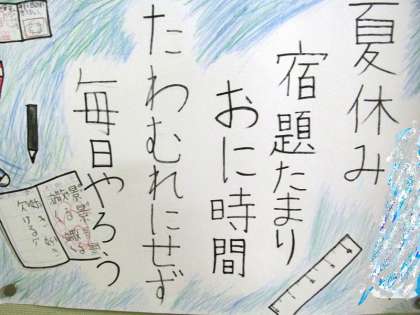 夏休み
宿題たまり
おに時間
たわむれにせず
毎日やろう